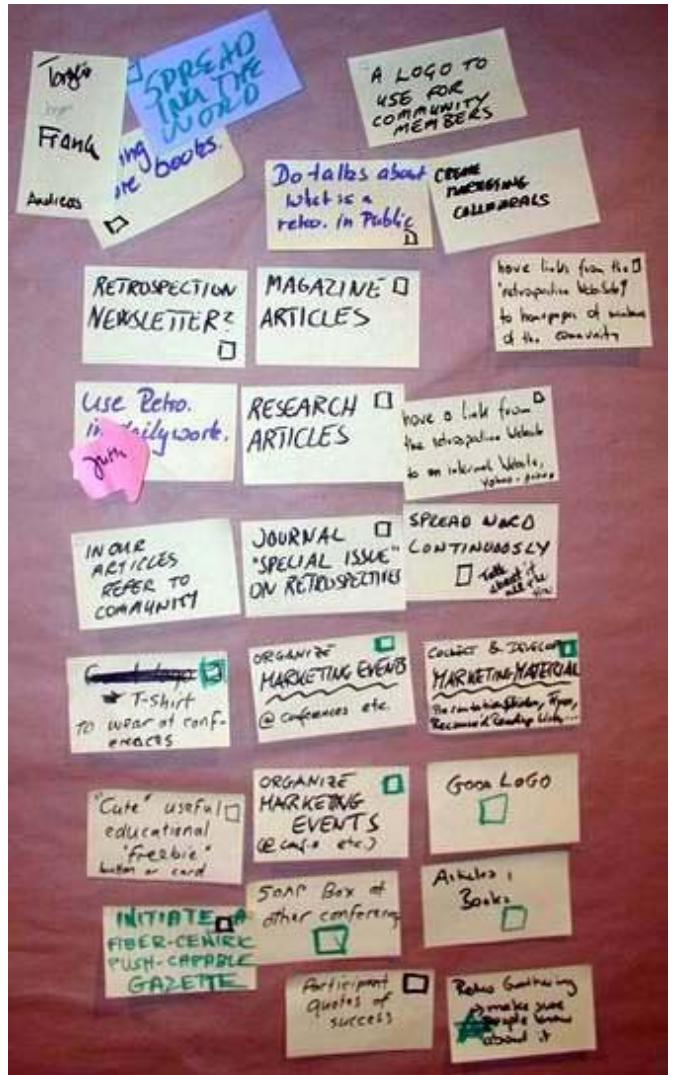 Frank
Andreas
SPREAD
ING THE
WORD
ing
re books.
A LOGO TO
USE FOR
COMMUNITY
MEMBERS
Do talks about
what is a
retro. in Public
CREATE
MARKETING
COLLATERALS
RETROSPECTION
NEWSLETTER?
MAGAZINE
ARTICLES
have links from the
"retrospective Website"
to homepages of members
of the community
Use Retro.
in dailywork.
Jutta
RESEARCH
ARTICLES
have a link from
the retrospective Website
to an internal Website,
IN OUR
ARTICLES
REFER TO
COMMUNITY
JOURNAL
"SPECIAL ISSUE"
ON RETROSPECTIVES
SPREAD WORD
CONTINUOUSLY
Talk
about it
all the
T-Shirt
TO wear at conf-
erences
ORGANIZE
MARKETING EVENTS
@ conferences etc.
COLLECT & DEVELOP
MARKETING MATERIAL
Recommended Reading Lists...
"Cute" useful
educational
"freebie"
button or card
ORGANIZE
MARKETING
EVENTS
(@ conf.s etc.)
GOOD LOGO
INITIATE A
FIBER-CENTRIC
PUSH-CAPABLE
GAZETTE
SOAP Box at
other conference
Articles,
Books
Participant
quotes of
success
Retro Gathering
make sure
people know
about it